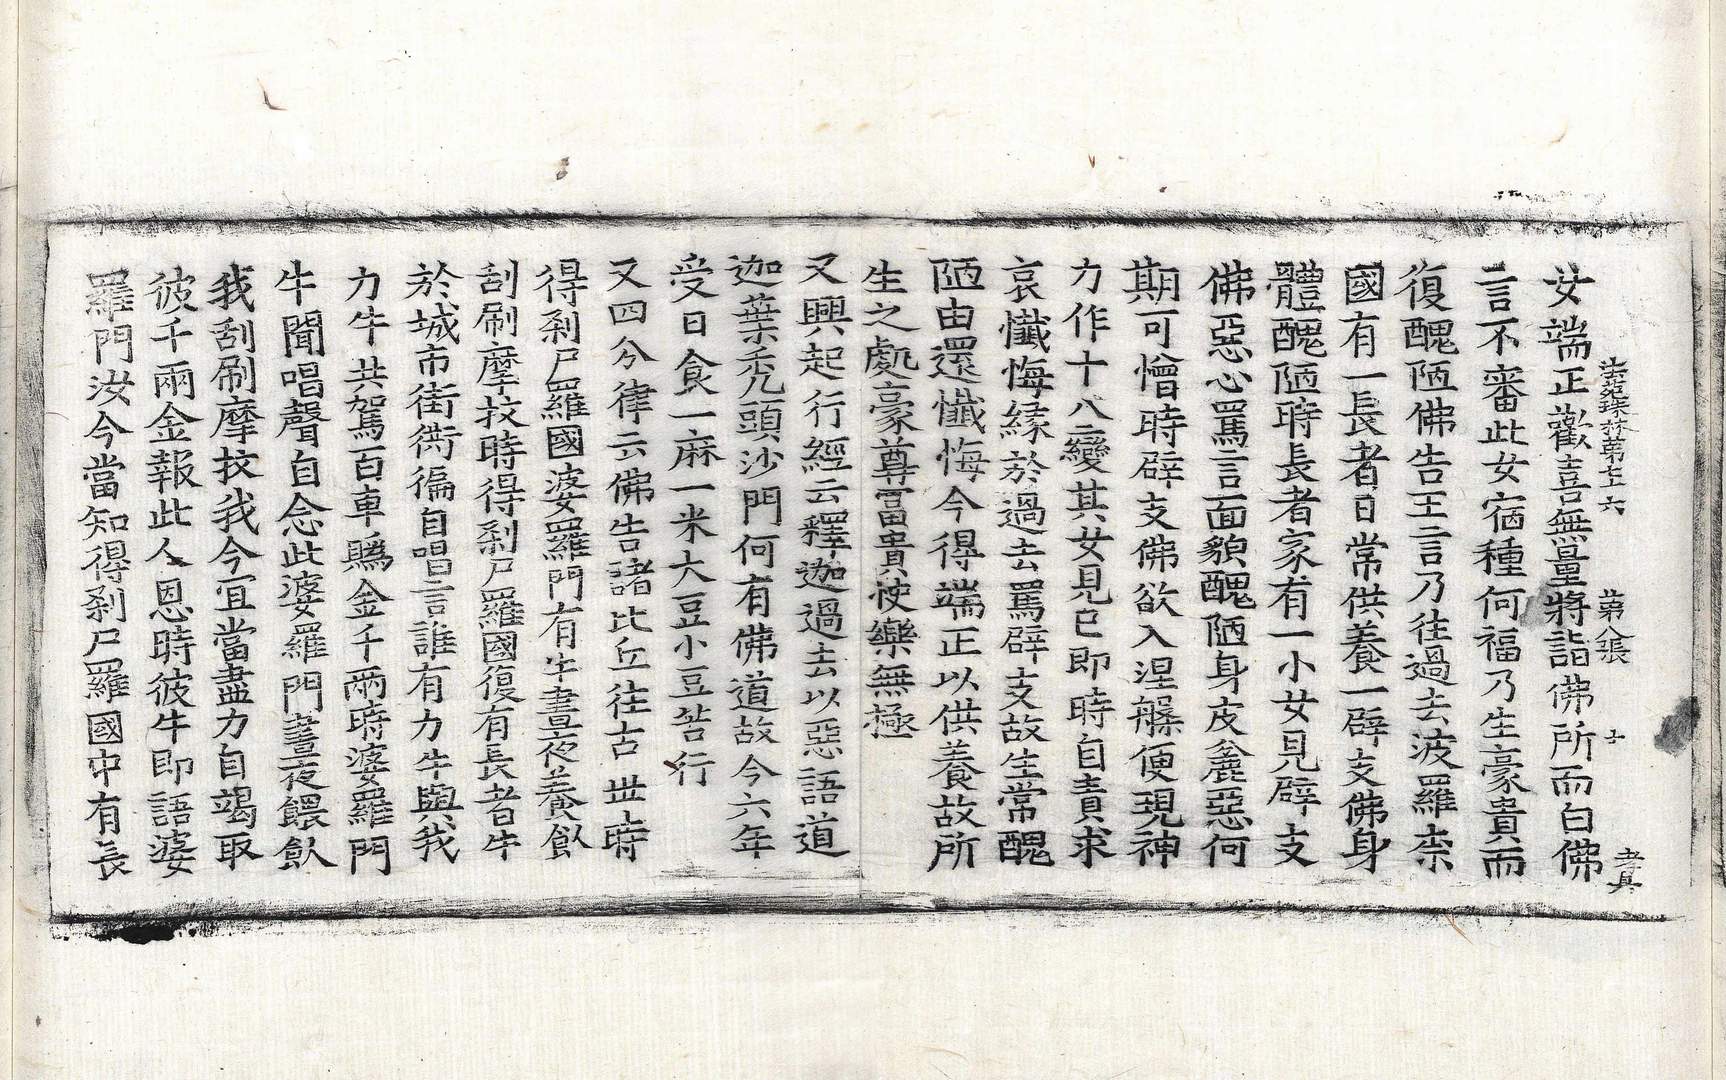 法苑珠林第七十六 第八張 士 孝具
女端正歡喜無量將詣佛所而白佛
言不審此女宿種何福乃生豪貴而
復醜陋佛告王言乃往過去波羅柰
國有一長者日常供養一辟支佛身
體醜陋時長者家有一小女見辟支
佛惡心罵言面貌醜陋身皮麁惡何
期可憎時辟支佛欲入涅槃便現神
力作十八變其女見已即時自責求
哀懺悔緣於過去罵辟支故生常醜
陋由還懺悔今得端正以供養故所
生之處豪尊冨貴快樂無極
又興起行經云釋迦過去以惡語道
迦葉禿頭沙門何有佛道故今六年
受日食一麻一米大豆小豆苦行
又四分律云佛告諸比丘往古世時
得剎尸羅國婆羅門有牛晝夜養飲
刮刷摩抆時得剎尸羅國復有長者牛
於城市街衖徧自唱言誰有力牛與我
力牛共駕百車賭金千兩時婆羅門
牛聞唱聲自念此婆羅門晝夜餧飲
我刮刷摩抆我今宜當盡力自竭取
彼千兩金報此人恩時彼牛即語婆
羅門汝今當知得剎尸羅國中有長